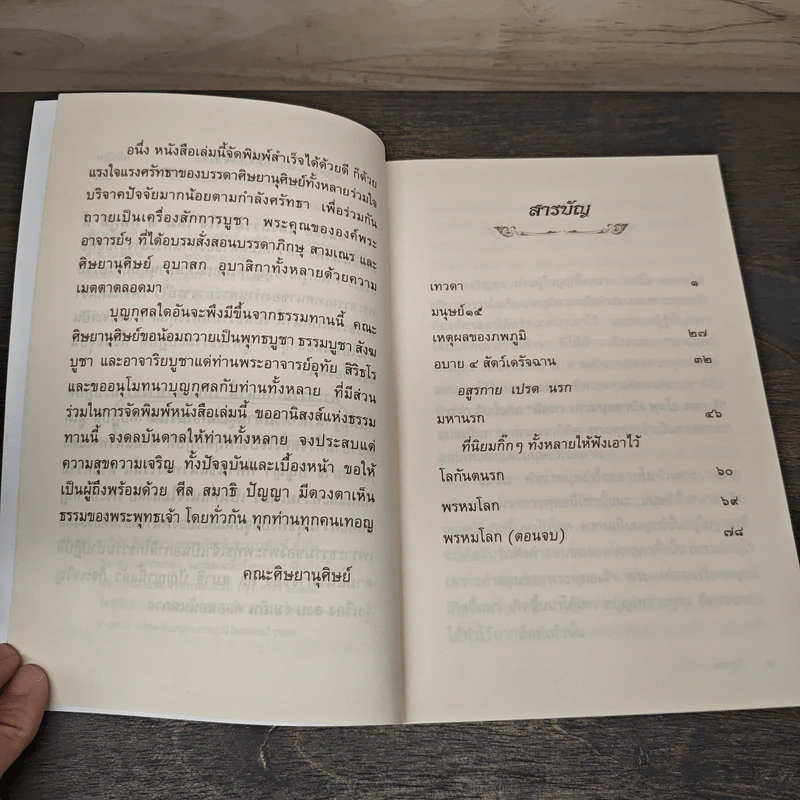 อนึ่ง หนังสือเล่มนี้จัดพิมพ์สำเร็จได้ด้วยดี ก็ด้วย
แรงใจแรงศรัทธาของบรรดาศิษยานุศิษย์ทั้งหลายร่วมใจ
บริจาคปัจจัยมากน้อยตามกำลังศรัทธา เพื่อร่วมกัน
ถวายเป็นเครื่องสักการบูชา พระคุณขององค์พระ
อาจารย์ฯ ที่ได้อบรมสั่งสอนบรรดาภิกษุ สามเณร และ
ศิษยานุศิษย์ อุบาสก อุบาสิกาทั้งหลายด้วยความ
เมตตาตลอดมา
บุญกุศลใดอันจะพึงมีขึ้นจากธรรมทานนี้ คณะ
ศิษยานุศิษย์ขอน้อมถวายเป็นพุทธบูชา ธรรมบูชา สังฆ
บูชา และอาจาริยบูชาแด่ท่านพระอาจารย์อุทัย สิริธโร
และขออนุโมทนาบุญกุศลกับท่านทั้งหลาย ที่มีส่วน
ร่วมในการจัดพิมพ์หนังสือเล่มนี้ ขออานิสงส์แห่งธรรม
ทานนี้ จงดลบันดาลให้ท่านทั้งหลาย จงประสบแด่
ความสุขความเจริญ ทั้งปัจจุบันและเบื้องหน้า ขอให้
เป็นผู้ถึงพร้อมด้วย ศีล สมาธิ ปัญญา มีดวงตาเห็น
ธรรมของพระพุทธเจ้า โดยทั่วกัน ทุกท่านทุกคนเทอญ
คณะศิษยานุศิษย์
สารบัญ
เทวดา ๑
มนุษย์๑๕
เหตุผลของภพภูมิ ๒๗
อบาย ๔ สัตว์เดรัจฉาน ๓๒
อสูรกาย เปรต นรก
มหานรก ๔๖
ที่นิยมกิ๊กๆ ทั้งหลายให้ฟังเอาไว้
โลกันตนรก ๖๐
พรหมโลก ๖๙
พรหมโลก (ตอนจบ) ๗๘